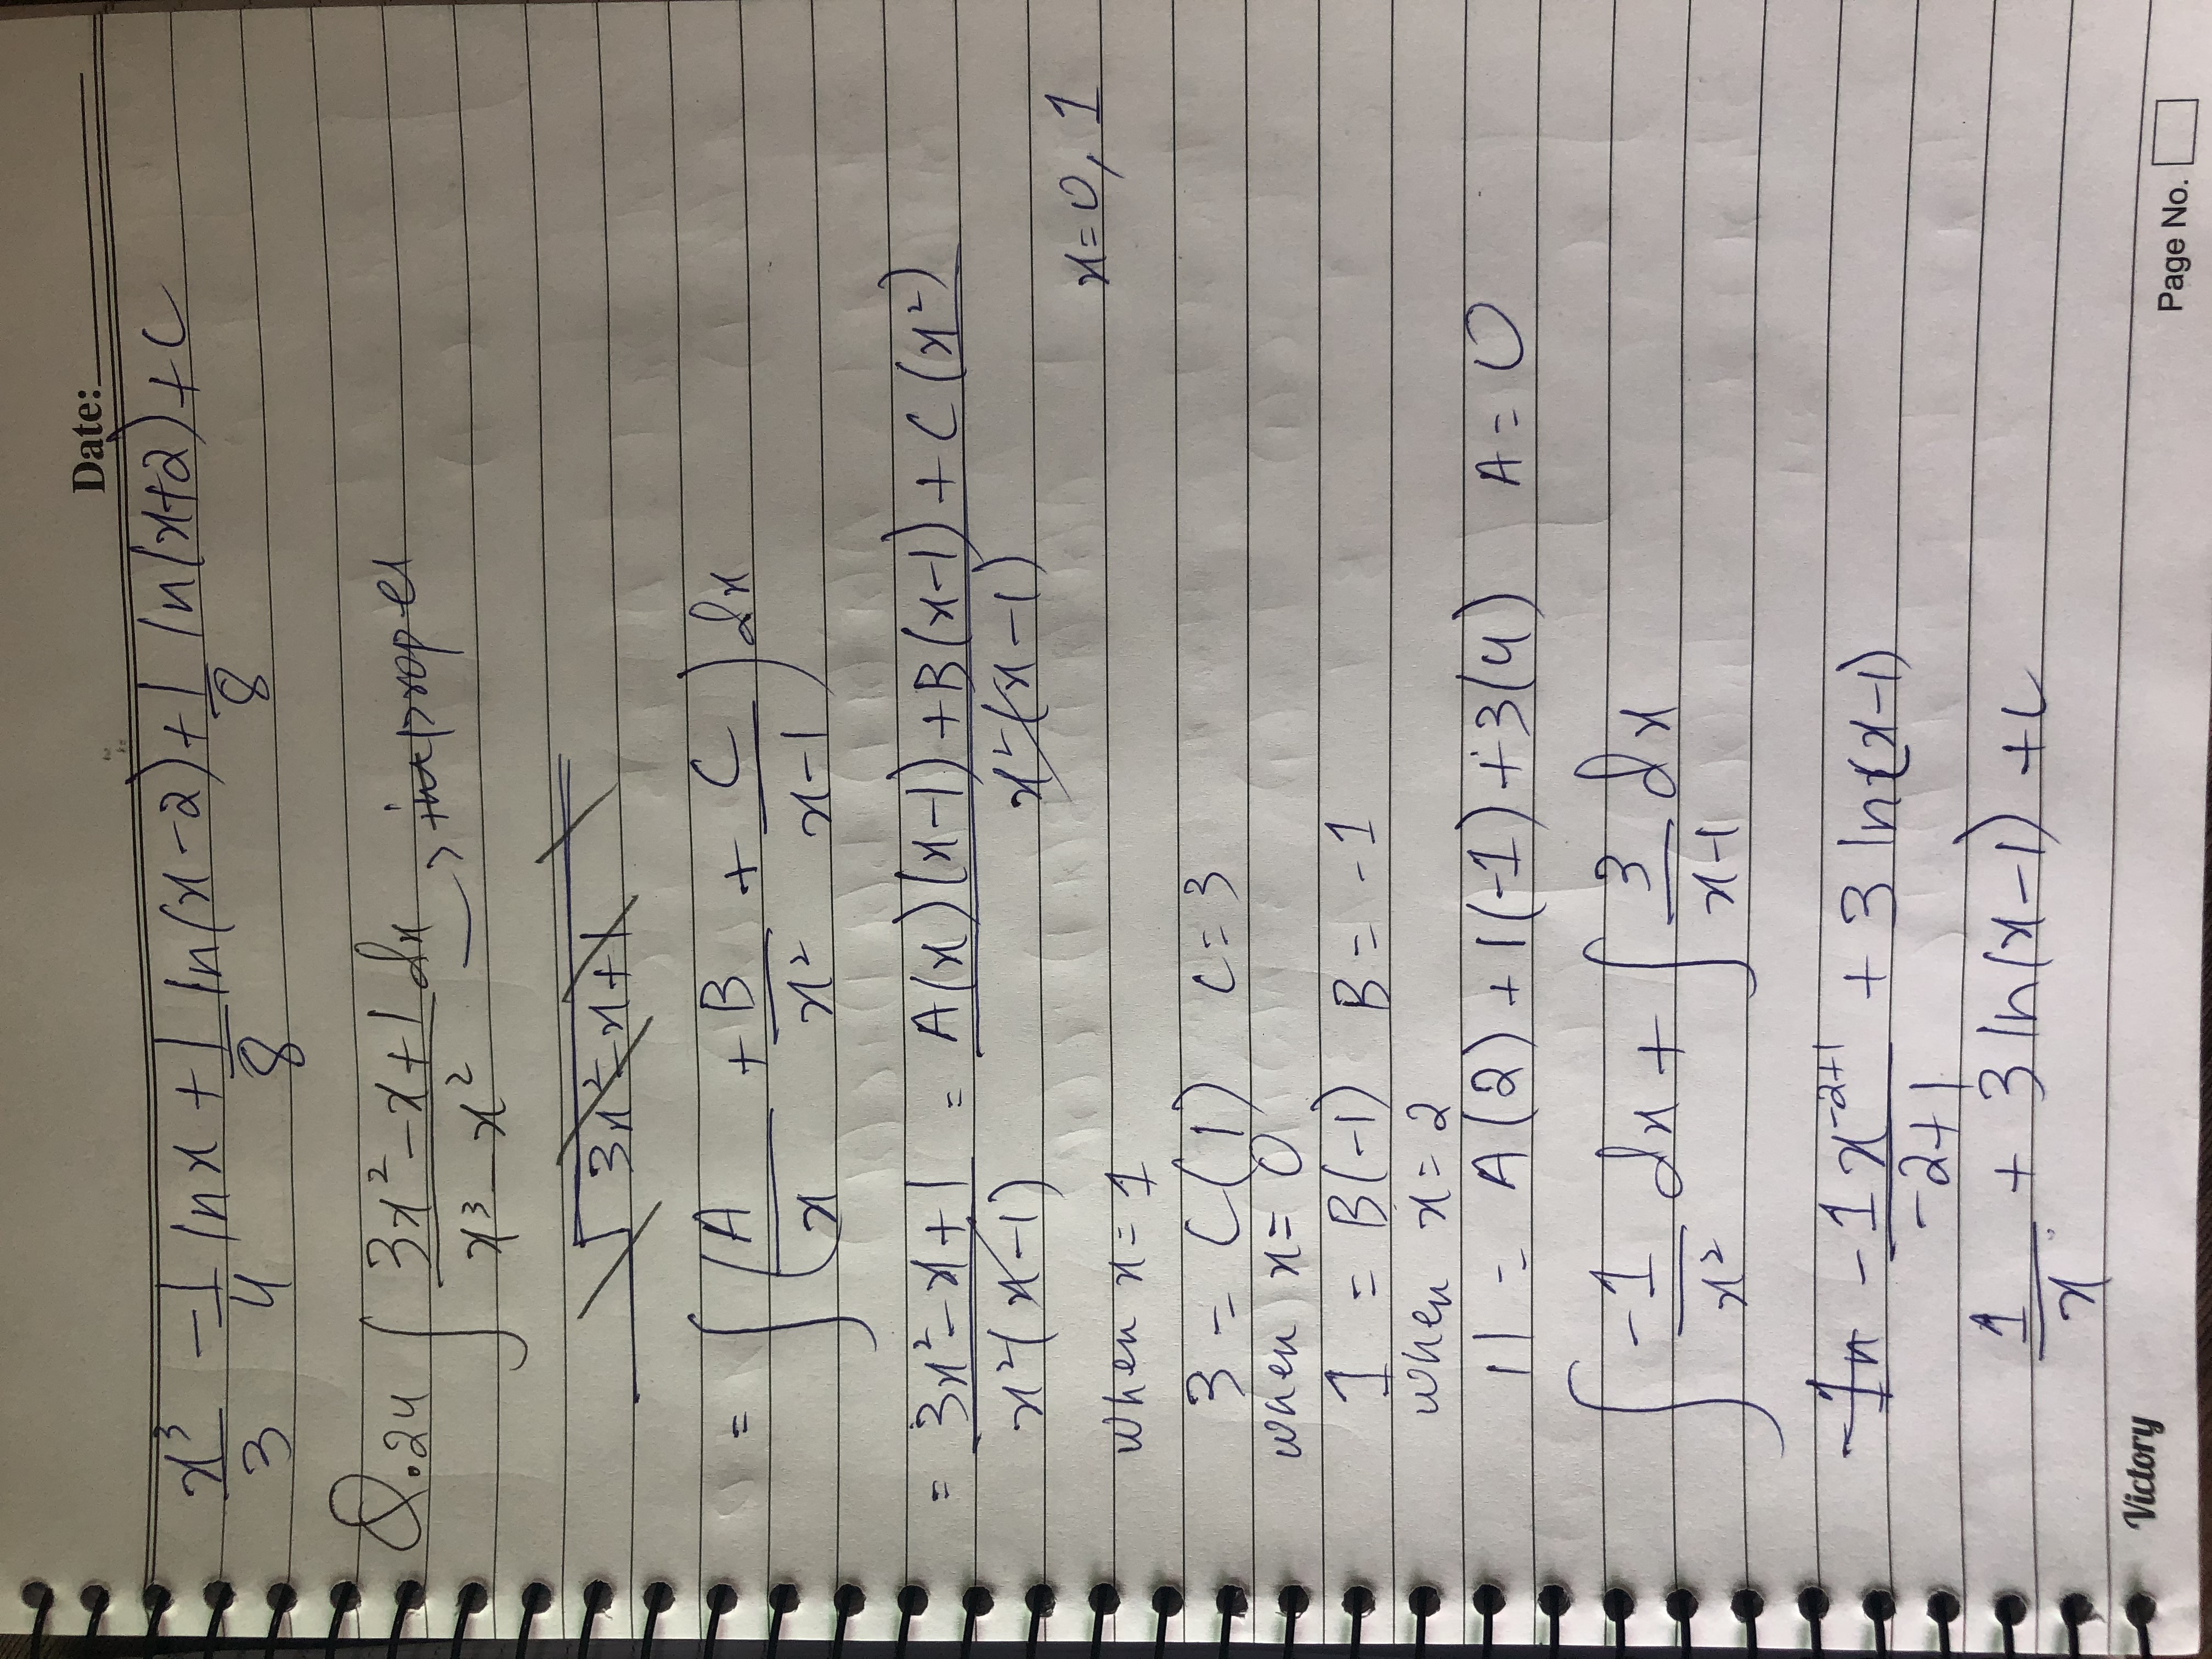 Date:
x³/3 -1/4 lnx + 1/8 ln(x-2) + 1/8 ln(x+2) + C
Q.24 ∫ 3x²-x+1/x³-x² dx → improper
√3x²-x+1
= ∫ (A/x + B/x² + C/x-1) dx
= 3x²-x+1/x²(x-1) = A(x)(x-1)+B(x-1)+C(x²)/x²(x-1)
x=0, 1
when x=1
3 = C(1) C=3
when x=0
1 = B(-1) B= -1
when x=2
11 = A(2)+1(-1)+3(4) A= 0
∫ -1/x² dx + ∫ 3/x-1 dx
-1n -1x⁻²⁺¹/-2+1 + 3 ln(x-1)
1/x + 3 ln(x-1) +C
Victory
Page No.